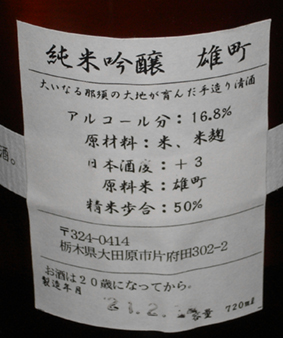 純米吟醸 雄町
大いなる那須の大地が育んだ手造り清酒
アルコール分：16.8%
原材料：米、米麹
日本酒度：＋3
原料米：雄町
精米歩合：50%
酒。
〒324-0414
栃木県大田原市片府田302-2
お酒は２０歳になってから。
製造年月
容量 720ml